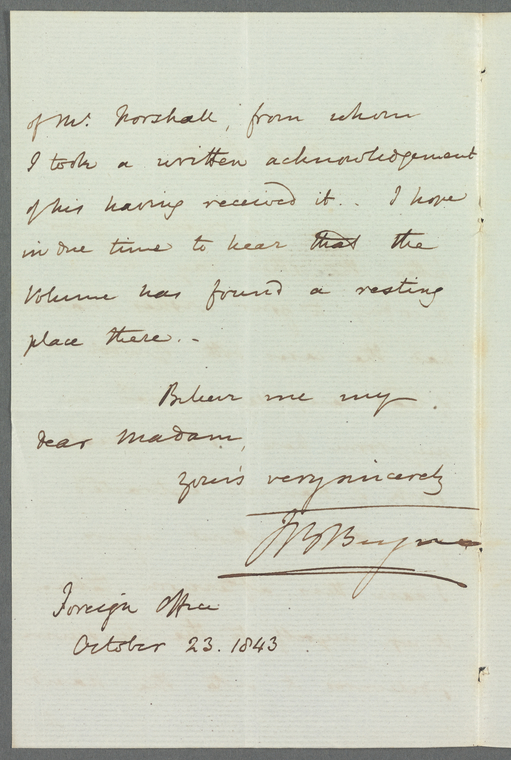 of Mr. Norshall, from whom
I took a written acknowledgement
of his having received it.. I hope
in due time to hear that the
Volume has found a resting
place there.-
Believe me my
dear Madam,
yours very sincerely
Foreign Office
October 23. 1843